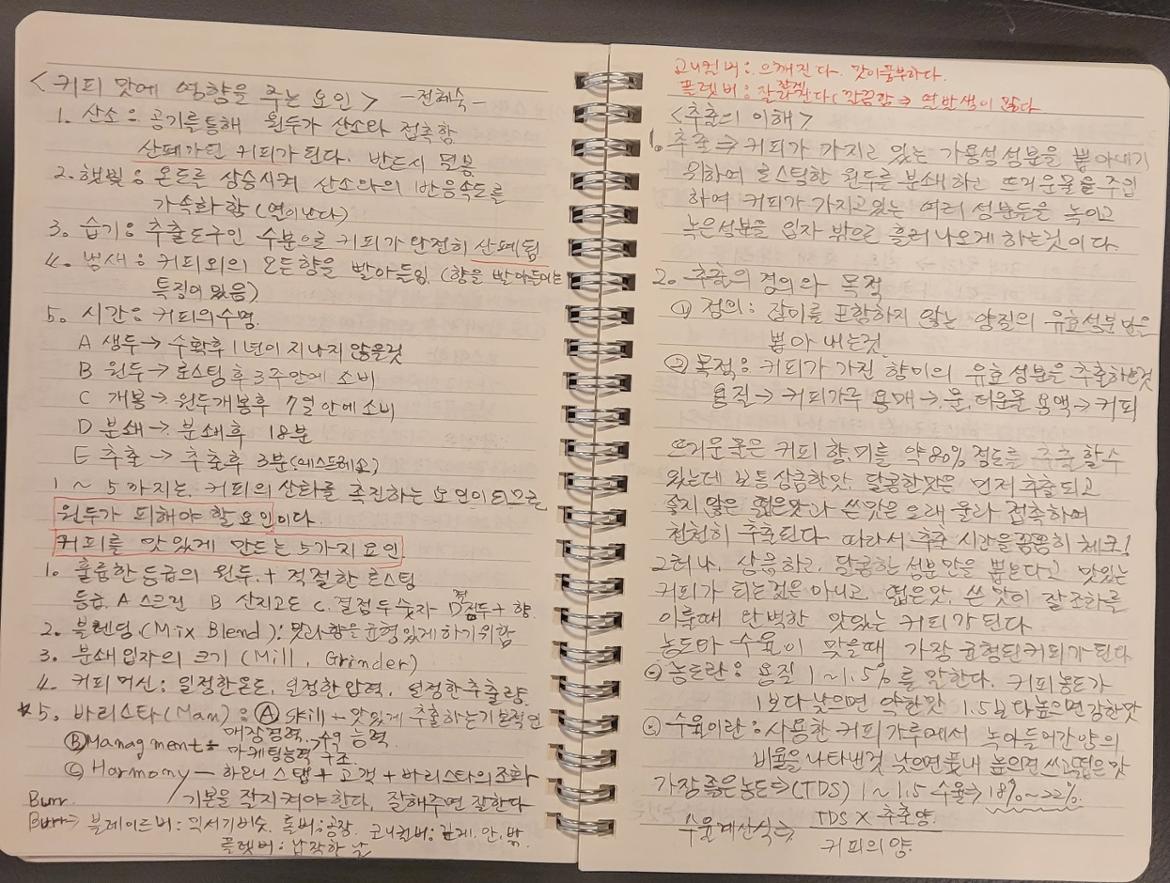 <커피 맛에 영향을 주는 요인> -전혜숙-
1. 산소 : 공기를통해 원두가 산소라 접촉함
산패가된 커피가 된다. 반드시 밀봉
2. 햇빛 : 온도를 상승시켜 산소와의 반응속도를
가속화 함 (연이난다)
3. 습기 : 추출도구인 수분으로 커피가 완전히 산패됨
4. 냄새 : 커피외의 모든향을 빨아들임 (향을 빨아들이는
특징이 있음)
5. 시간 : 커피의수명
A 생두→ 수확후 1년이 지나지 않을것
B 원두→ 로스팅 후 3주안에 소비
C 개봉→ 원두개봉후 7일 안에 소비
D 분쇄→ 분쇄후 18분
E 추출→ 추출후 3분(에스프레소)
1 ~ 5 까지는 커피의 산화를 촉진하는 요인이므로
원두가 피해야 할 요인이다
커피를 맛있게 만드는 5가지 요인
1. 훌륭한 등급의 원두 + 적절한 로스팅
등급. A 스크린 B 산지고도 C. 결점두숫자 D 점두 + 향.
2. 블렌딩 (Mix Blend) : 맛과향을 균형있게 하기위함
3. 분쇄입자의 크기 (Mill, Grinder)
4. 커피머신 : 일정한온도, 일정한압력, 일정한추출량.
*5. 바리스타(Man) : Ⓐ Skill - 맛있게 추출하는기본적인
Ⓑ Managment - 매장경력 능력
마케팅능력 구조.
Ⓒ Harmony - 하모니 스탭 + 고객 + 바리스타의조화
기본을 잘지켜야한다, 잘해주면 잘한다
Burr
Burr→ 블레이드버 : 믹서기버섯. 롤버:공장. 코니컬버: 안, 밖
플렛버 : 납작한 날
코니컬 버 : 으깨진다. 맛이풍부하다.
플렛버 : 잘 깔끔함 ⇒ 열 발생이 많다
<추출의 이해>
1. 추출 ⇒ 커피가 가지고 있는 가용성성분을 뽑아내기
위하여 로스팅한 원두를 분쇄하고 뜨거운물을 주입
하여 커피가 가지고있는 여러 성분들을 녹이고
녹은성분을 입자 밖으로 흘러나오게 하는것이다.
2. 추출의 정의와 목적
① 정의 : 잡미를 포함하지 않는 양질의 유효성분만을
뽑아 내는것
② 목적 : 커피가 가진 향미의 유효성분을 추출하는것
용질→ 커피가루 용매→ 물, 더운물 용액→ 커피
뜨거운 물은 커피 향미를 약 80% 정도를 추출 할수
있는데 보통 상큼한맛, 달콤한맛은 먼저 추출되고
좋지 않은 떫은맛과 쓴맛은 오래 물과 접촉하며
천천히 추출된다 따라서 추출 시간을꼼꼼히 체크!
그러나, 상큼하고, 달콤한 성분만을 뽑는다고 맛있는
커피가 되는것은 아니고 떫은맛, 쓴 맛이 잘조화를
이룰때 완벽한 맛있는 커피가 된다
농도와 수율이 맞을때 가장 균형된커피가 된다
농도란 : 용질 1~1.5%를 말한다. 커피농도가
1보다낮으면 약한맛 1.5보다높으면강한맛
수율이란 : 사용한 커피가루에서 녹아들어간양의
비율을 나타낸것 낮으면풋내 높으면 쓰고떫은 맛
가장 좋은농도⇒(TDS) 1 ~ 1.5 수율⇒ 18%~22%.
수율계산식⇒ TDS X 추출양
커피의 양